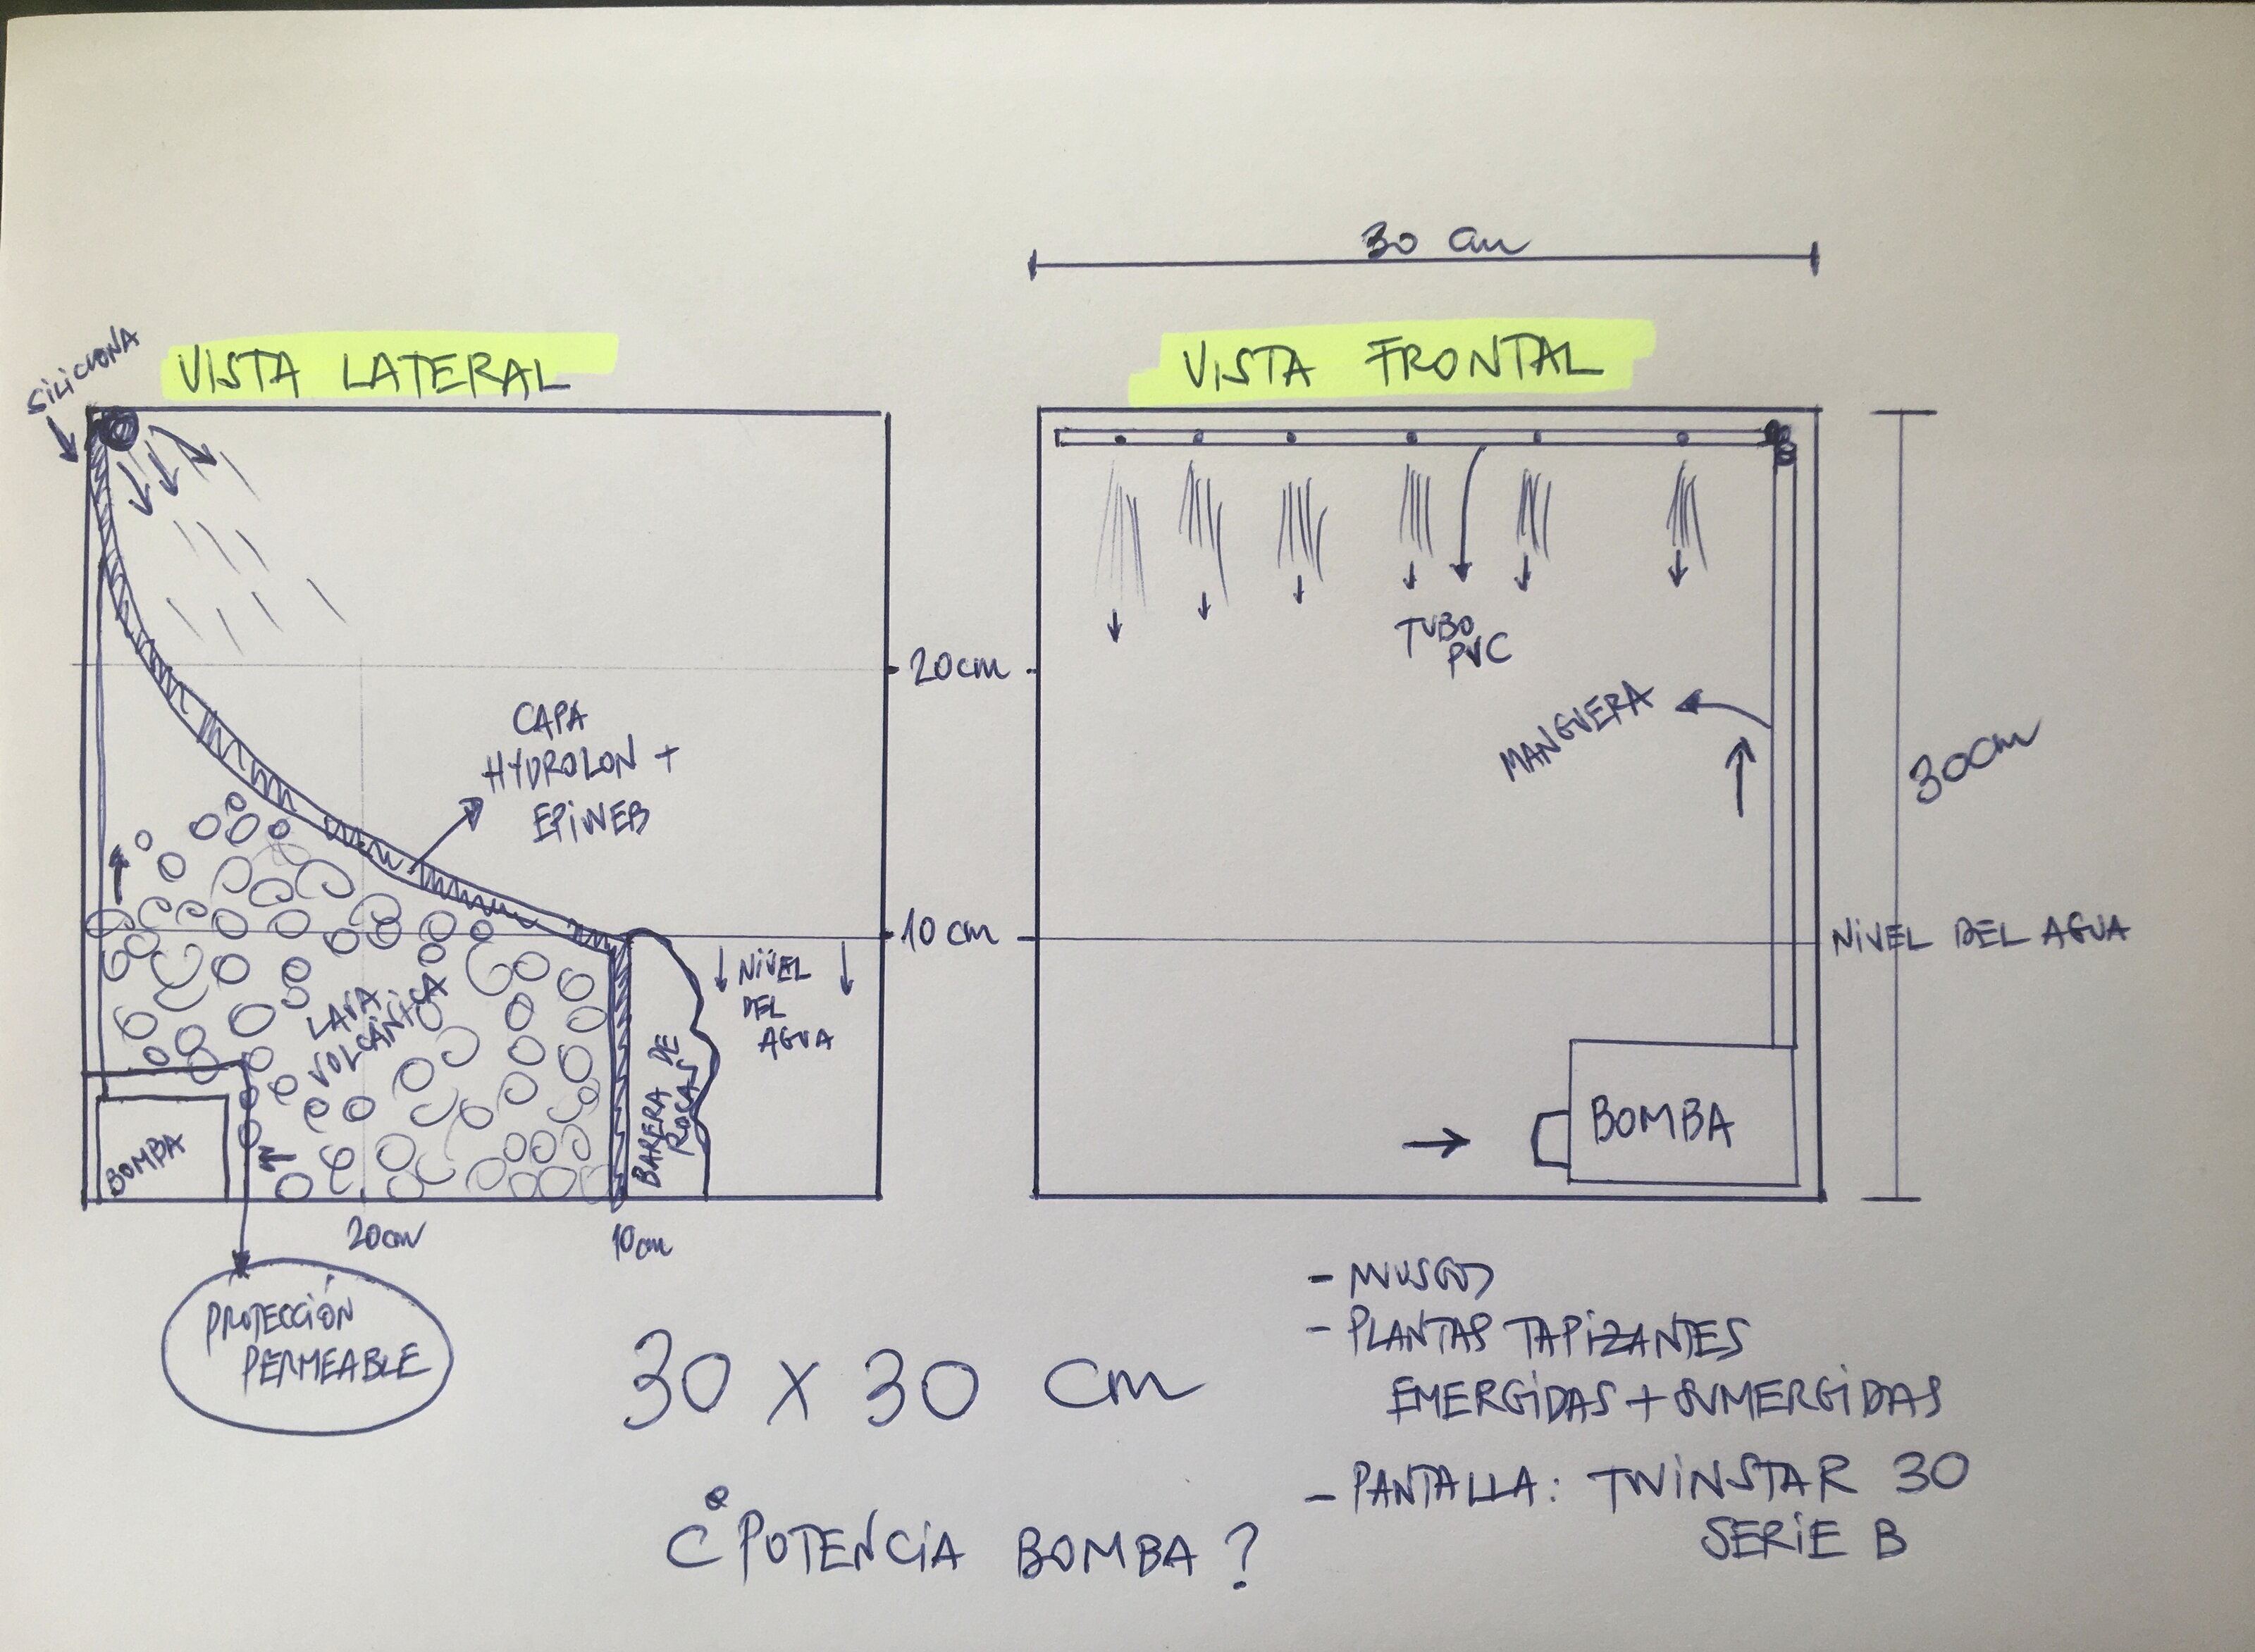 30 cm
SILICONA
VISTA LATERAL
VISTA FRONTAL
20cm
TUBO
PVC
MANGUERA
CAPA
HYDROLON +
EPIWEB
30cm
10 cm
NIVEL DEL AGUA
NIVEL
DEL
AGUA
LAVA
VOLCÁNICA
BARERA DE
ROCAS
BOMBA
BOMBA
20cm
10cm
PROTECCIÓN
PERMEABLE
30 x 30 cm
¿POTENCIA BOMBA?
- MUSGOS
- PLANTAS TAPIZANTES
EMERGIDAS + SUMERGIDAS
- PANTALLA: TWINSTAR 30
SERIE B